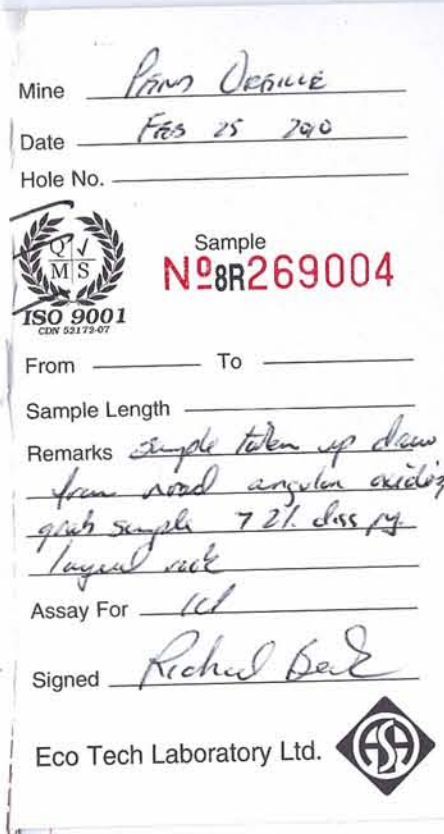 Mine Pend Oreille
Date Feb 25 2010
Hole No.
Q ✓
M S
ISO 9001
CDN 52172-07
Sample
Nº8R269004
From To
Sample Length
Remarks sample taken up draw
from road angular
grab sample >2% diss py.
layered rock
Assay For
Signed Richard
Eco Tech Laboratory Ltd.